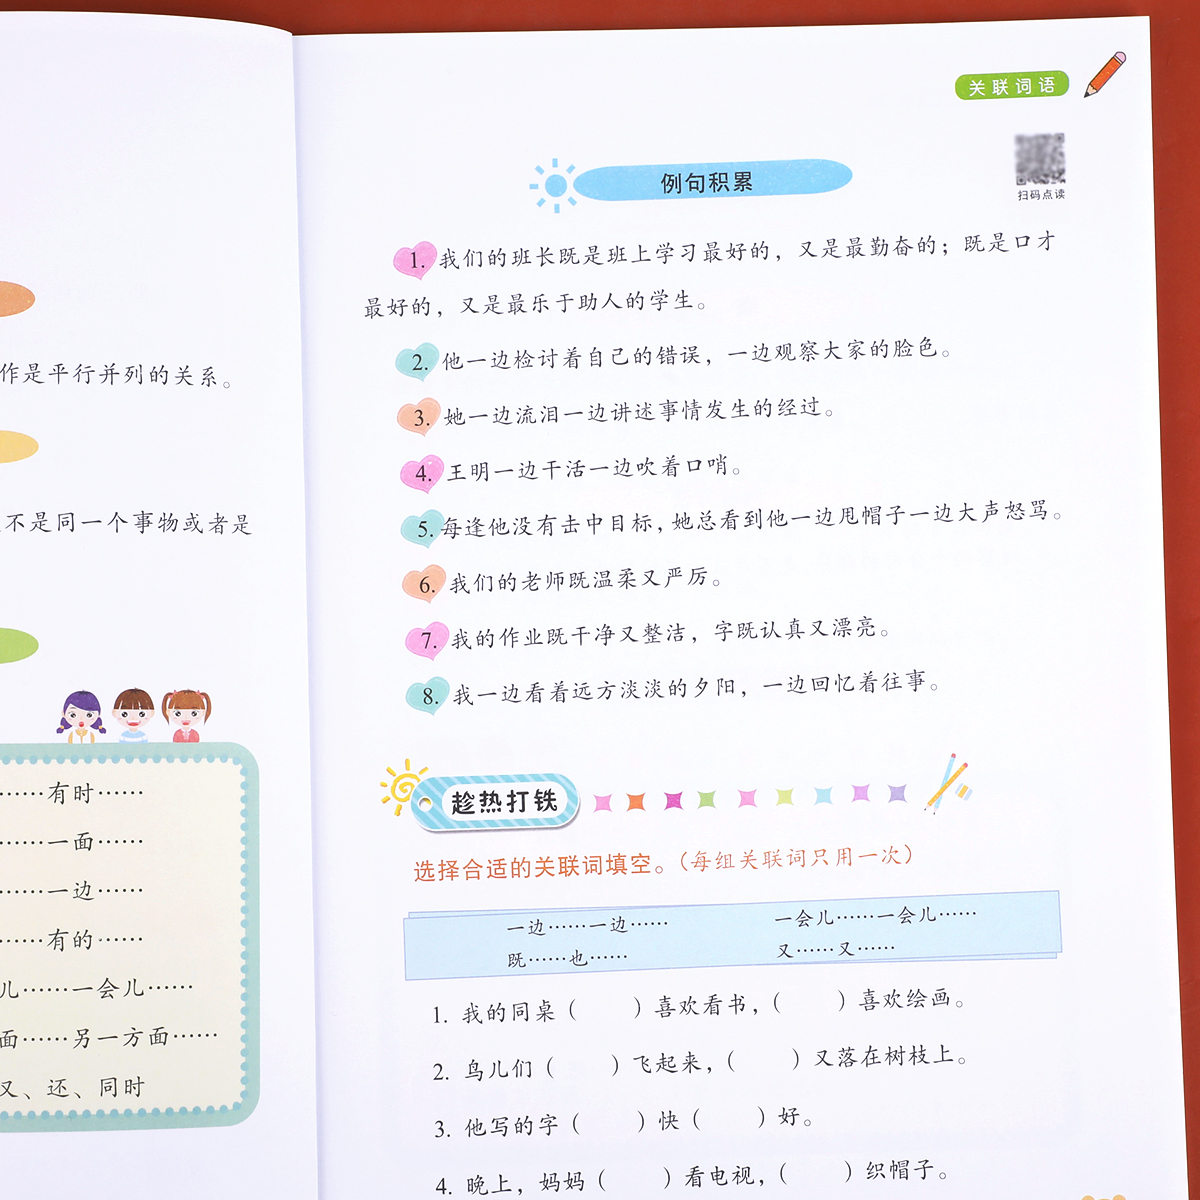 作是平行并列的关系。
不是同一个事物或者是
……有时……
……一面……
……一边……
……有的……
儿……一会儿……
面……另一方面……
又、还、同时
关联词语
扫码点读
例句积累
1. 我们的班长既是班上学习最好的，又是最勤奋的；既是口才
最好的，又是最乐于助人的学生。
2. 他一边检讨着自己的错误，一边观察大家的脸色。
3. 她一边流泪一边讲述事情发生的经过。
4. 王明一边干活一边吹着口哨。
5. 每逢他没有击中目标，她总看到他一边甩帽子一边大声怒骂。
6. 我们的老师既温柔又严厉。
7. 我的作业既干净又整洁，字既认真又漂亮。
8. 我一边看着远方淡淡的夕阳，一边回忆着往事。
趁热打铁
选择合适的关联词填空。（每组关联词只用一次）
一边……一边…… 一会儿……一会儿……
既……也…… 又……又……
1. 我的同桌（ ）喜欢看书，（ ）喜欢绘画。
2. 鸟儿们（ ）飞起来，（ ）又落在树枝上。
3. 他写的字（ ）快（ ）好。
4. 晚上，妈妈（ ）看电视，（ ）织帽子。